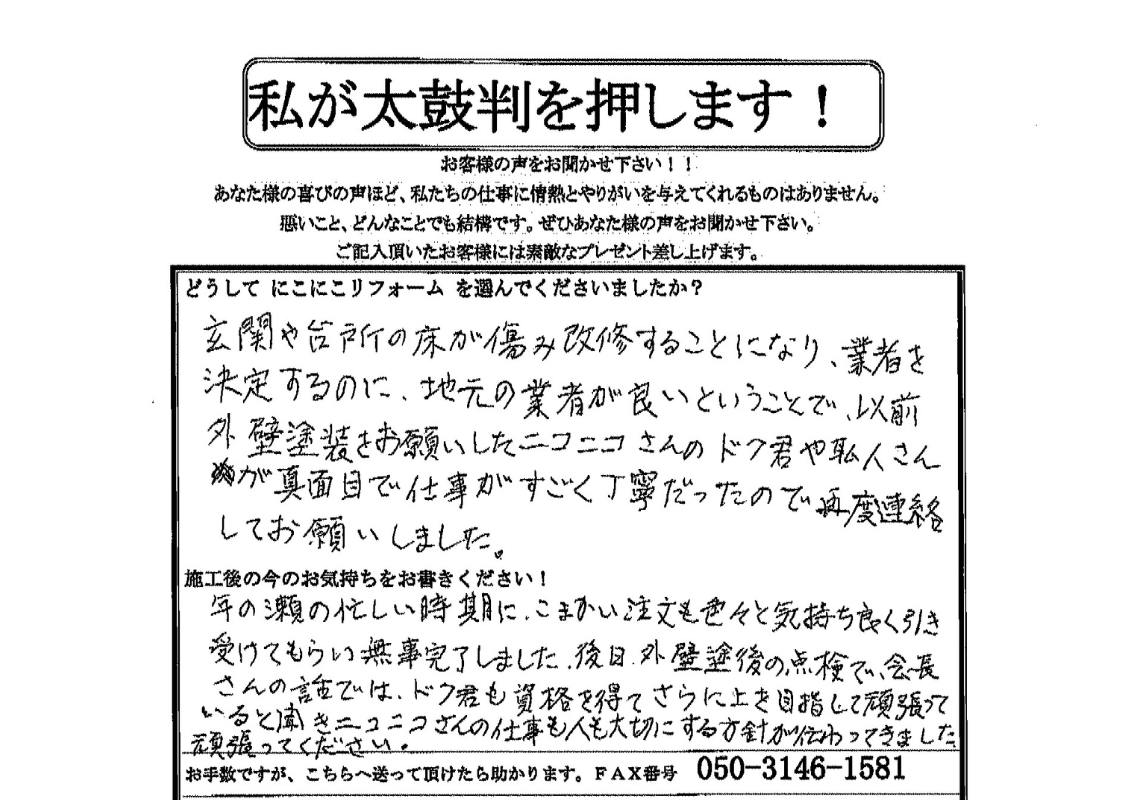 私が太鼓判を押します！
お客様の声をお聞かせ下さい！！
あなた様の喜びの声ほど、私たちの仕事に情熱とやりがいを与えてくれるものはありません。
悪いこと、どんなことでも結構です。ぜひあなた様の声をお聞かせ下さい。
ご記入頂いたお客様には素敵なプレゼント差し上げます。
どうして にこにこリフォーム を選んでくださいましたか？
玄関や台所の床が傷み改修することになり、業者を
決定するのに、地元の業者が良いということで、以前
外壁塗装をお願いしたニコニコさんのドク君や職人さん
が真面目で仕事がすごく丁寧だったので再度連絡
してお願いしました。
施工後の今のお気持ちをお書きください！
年の瀬の忙しい時期に、こまかい注文も色々と気持ち良く引き
受けてもらい無事完了しました。後日、外壁塗後の点検で、会長
さんの話では、ドク君も資格を得てさらに上を目指して頑張って
いると聞きニコニコさんの仕事も人も大切にする方針が伝わってきました
頑張ってください。
お手数ですが、こちらへ送って頂けたら助かります。ＦＡＸ番号 050-3146-1581